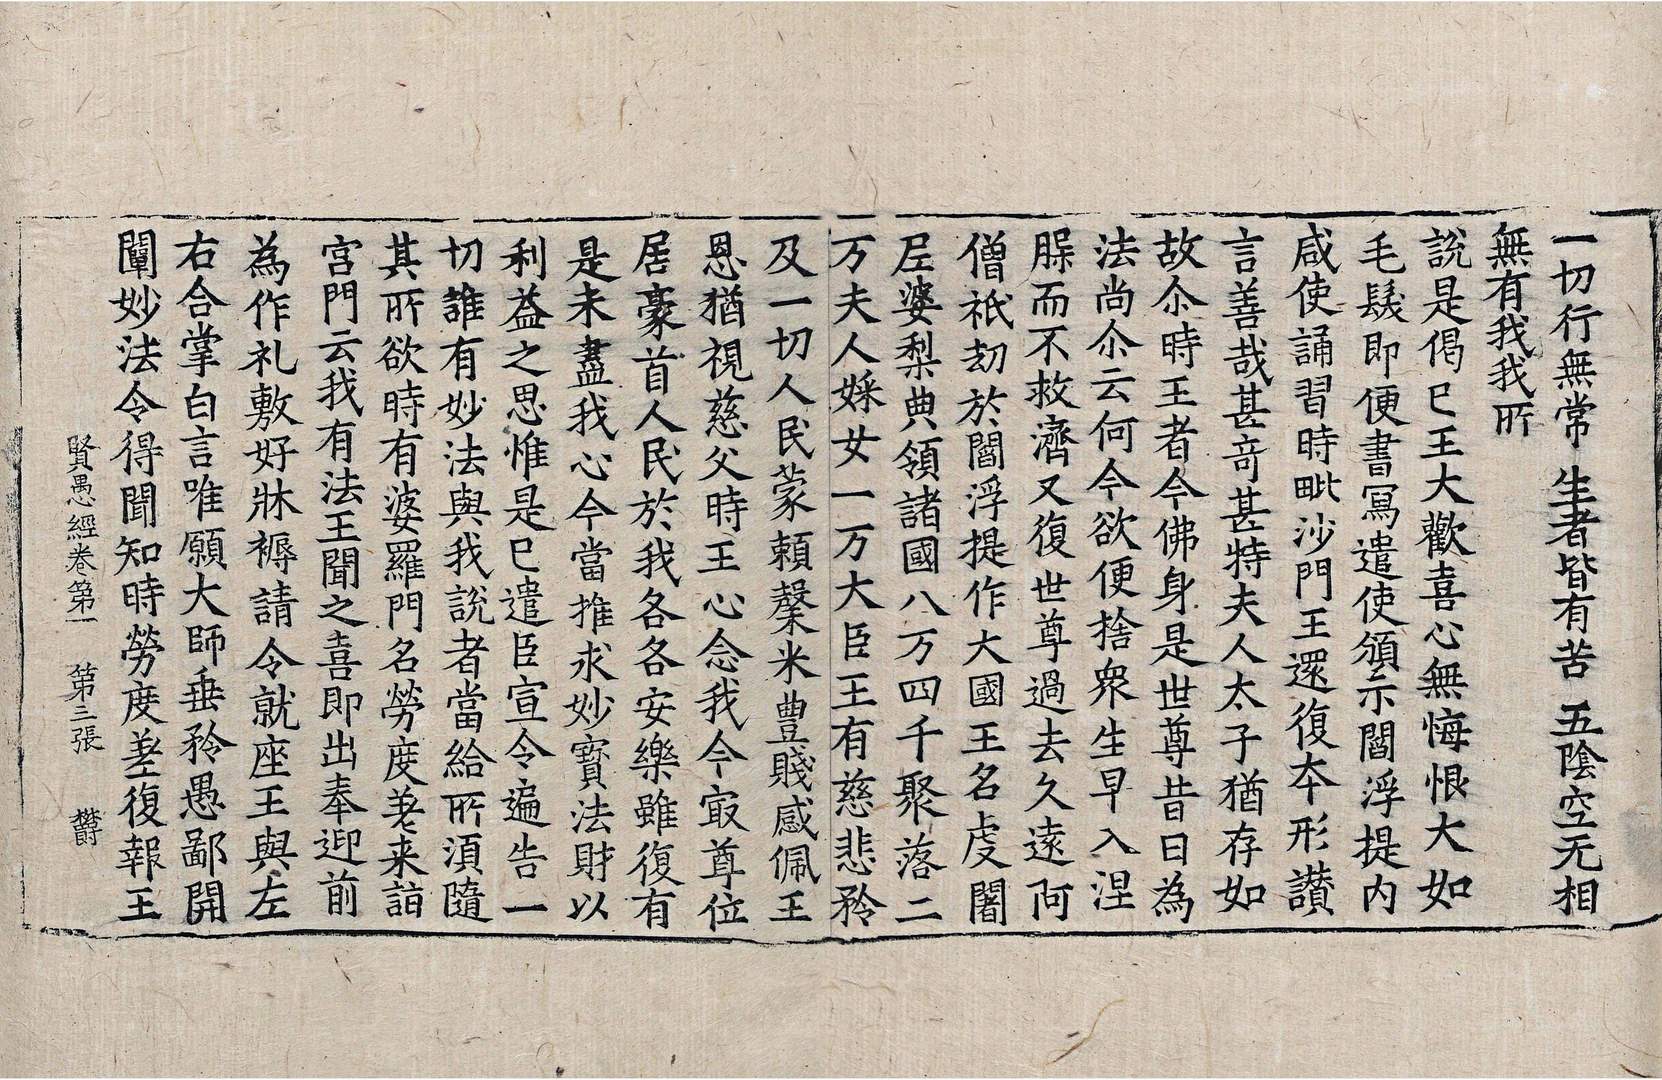 一切行無常 生者皆有苦 五陰空无相
無有我我所
說是偈已王大歡喜心無悔恨大如
毛髮即便書寫遣使頒示閻浮提內
咸使誦習時毗沙門王還復本形讚
言善哉甚奇甚特夫人太子猶存如
故尒時王者今佛身是世尊昔日為
法尚尒云何今欲便捨衆生早入涅
槃而不救濟又復世尊過去久遠阿
僧祇劫於閻浮提作大國王名虔闍
尼婆梨典領諸國八万四千聚落二
万夫人婇女一万大臣王有慈悲矜
及一切人民蒙賴馨米豊賤感佩王
恩猶視慈父時王心念我今㝡尊位
居豪首人民於我各各安樂雖復有
是未盡我心今當推求妙寶法財以
利益之思惟是已遣臣宣令遍告一
切誰有妙法與我說者當給所須隨
其所欲時有婆羅門名勞度差来詣
宮門云我有法王聞之喜即出奉迎前
為作礼敷好牀褥請令就座王與左
右合掌白言唯願大師垂矜愚鄙開
闡妙法令得聞知時勞度差復報王
賢愚經卷第一 第三張 欝